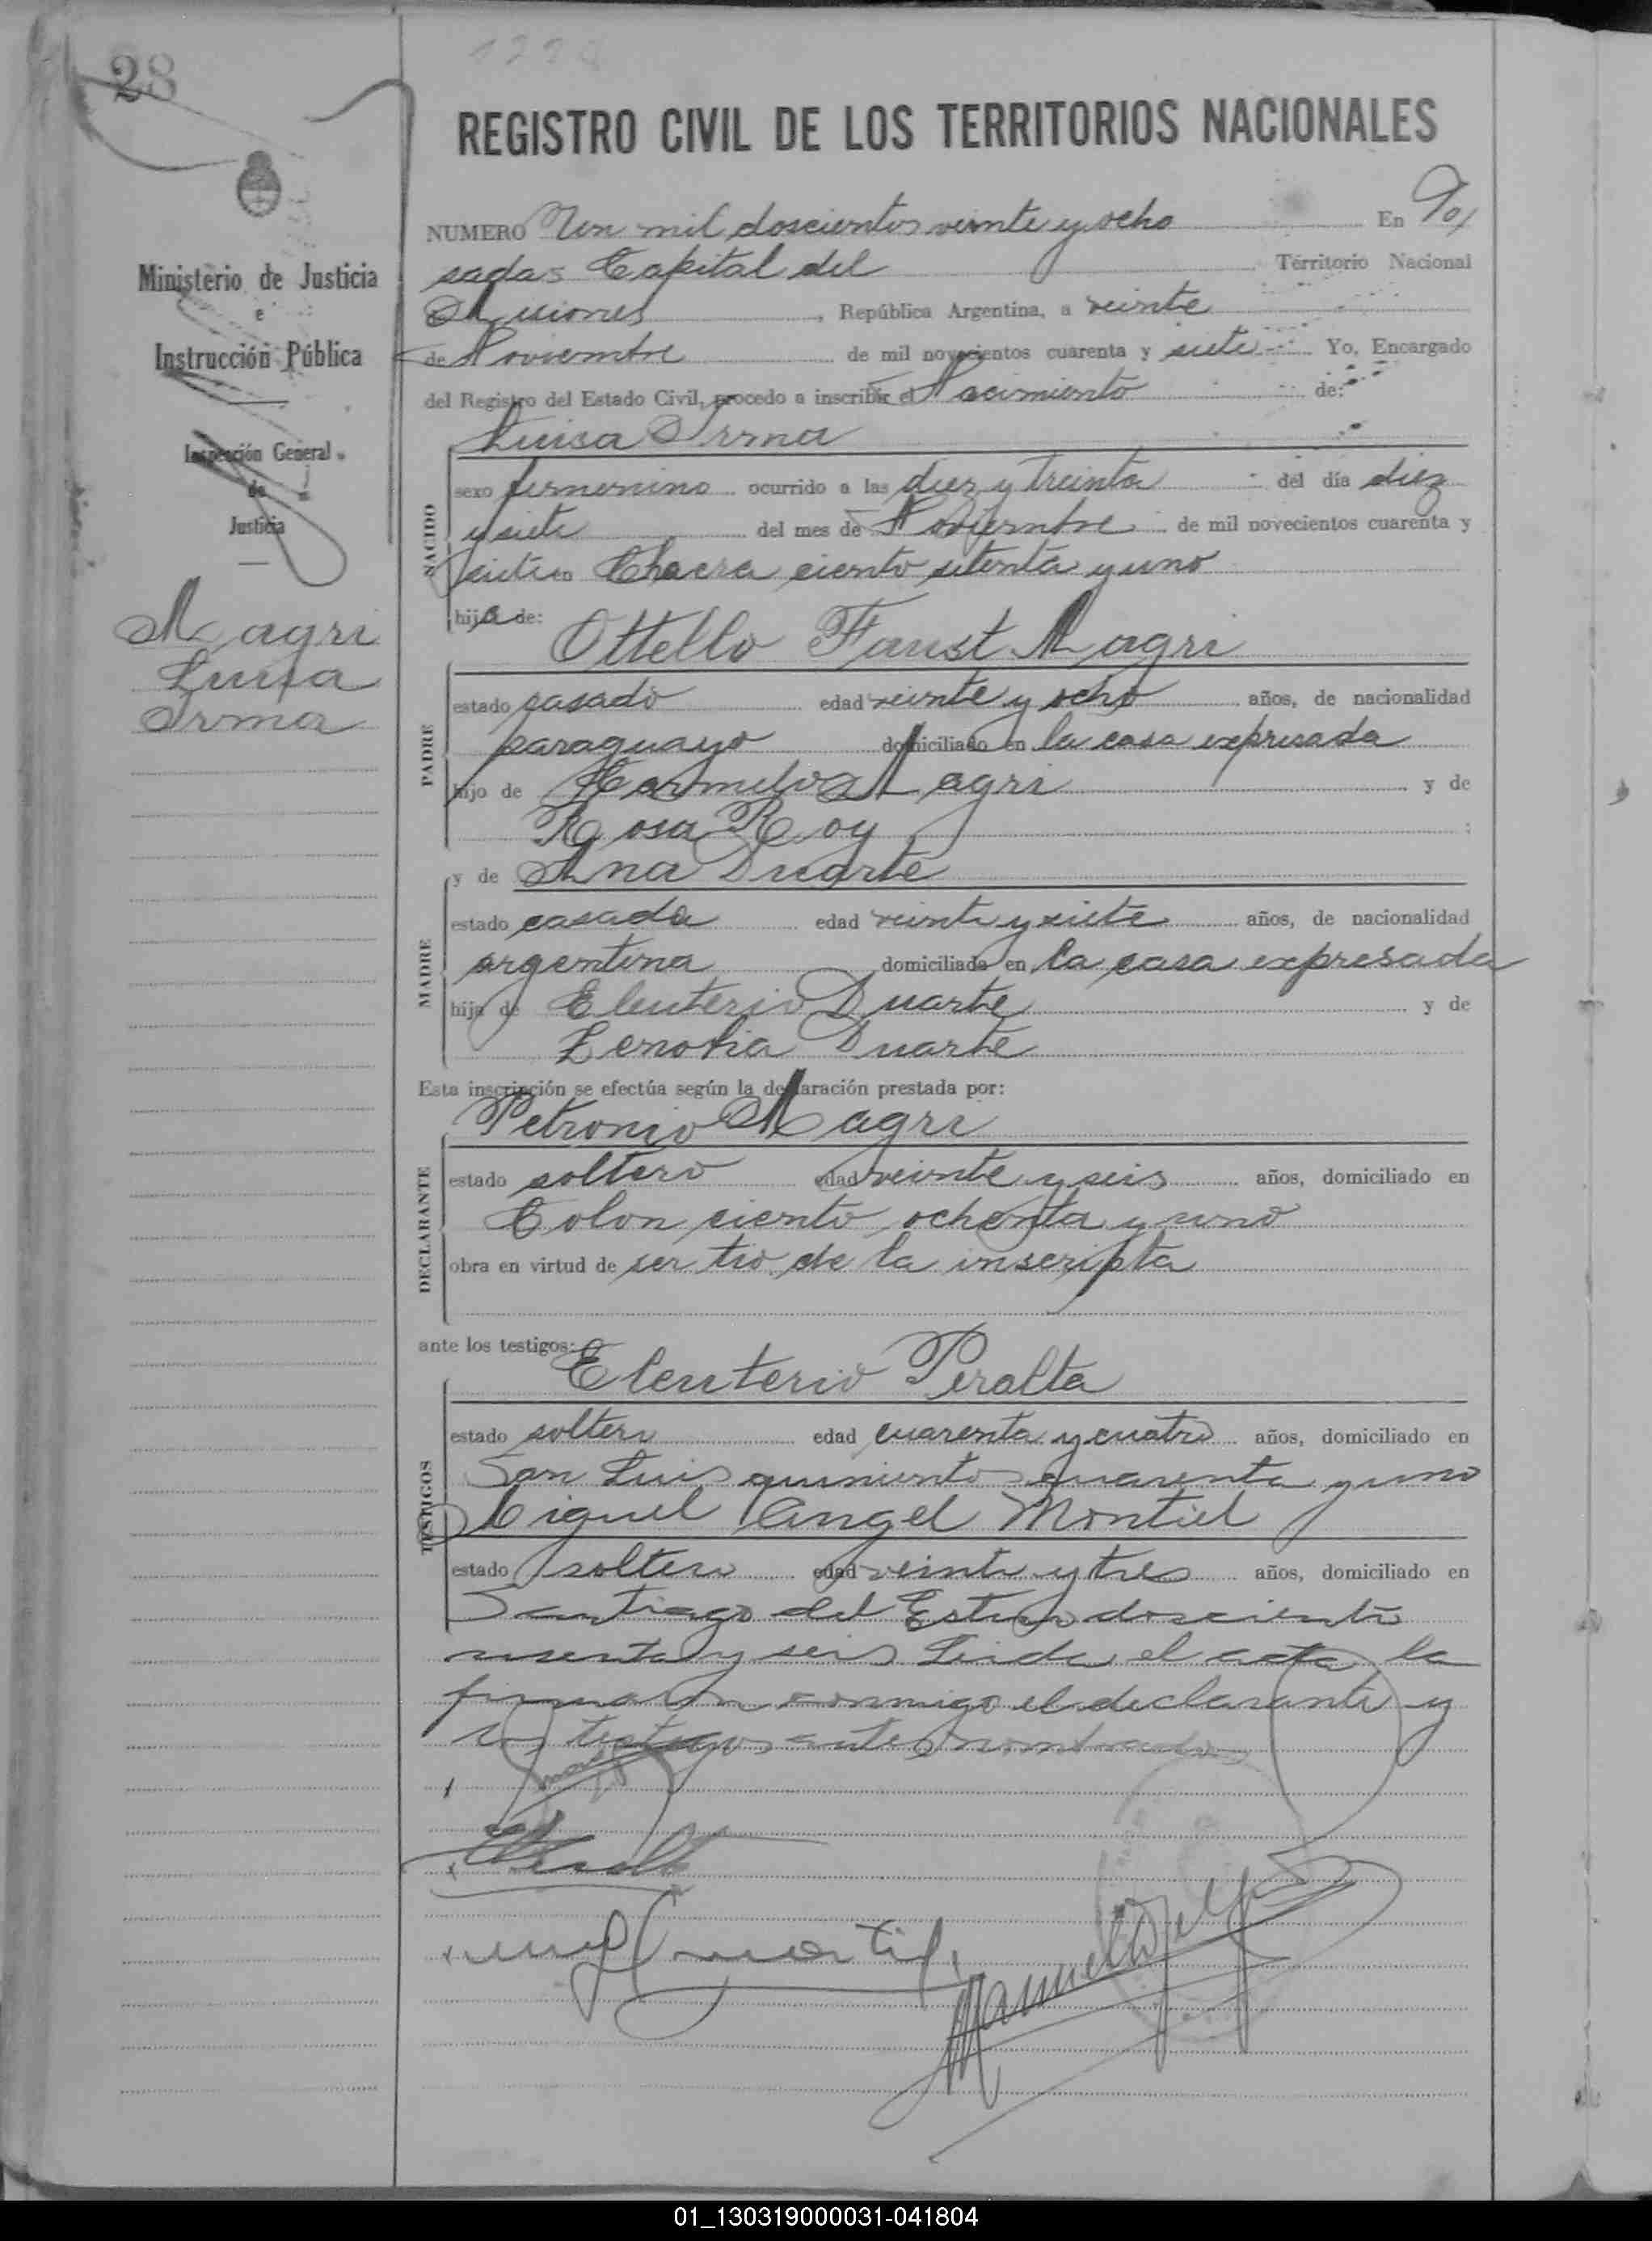 28
1228
REGISTRO CIVIL DE LOS TERRITORIOS NACIONALES
Ministerio de Justicia
e
Instrucción Pública
Inspección General
de
Justicia
Magri
Luisa
Irma
NUMERO Un mil doscientos veinte y ocho En Po/
sadas Capital del Territorio Nacional
de Misiones, República Argentina, a veinte
de Noviembre de mil novecientos cuarenta y siete Yo, Encargado
del Registro del Estado Civil, procedo a inscribir el Nacimiento de:
Luisa Irma
NACIDO
sexo femenino ocurrido a las diez y treinta del día diez
y siete del mes de Noviembre de mil novecientos cuarenta y
siete en Chacra ciento setenta y uno
hija de:
Ottello Faust Magri
PADRE
estado casado edad veinte y ocho años, de nacionalidad
paraguayo domiciliado en la casa expresada
hijo de Carmelo Magri y de
Rosa Roy
y de Ana Duarte
MADRE
estado casada edad veinte y siete años, de nacionalidad
argentina domiciliada en la casa expresada
hija de Eleuterio Duarte y de
Zenobia Duarte
Esta inscripción se efectúa según la declaración prestada por:
Petronio Magri
DECLARANTE
estado soltero edad veinte y seis años, domiciliado en
Colon ciento ochenta y uno
obra en virtud de ser tio de la inscripta
ante los testigos:
Eleuterio Peralta
TESTIGOS
estado soltero edad cuarenta y cuatro años, domiciliado en
San Luis quinientos cuarenta y uno
Miguel Angel Montiel
estado soltero edad veinte y tres años, domiciliado en
Santiago del Estero doscientos
y seis Leida el acta la
firmaron conmigo el declarante y
los testigos antes nombrados
01_130319000031-041804